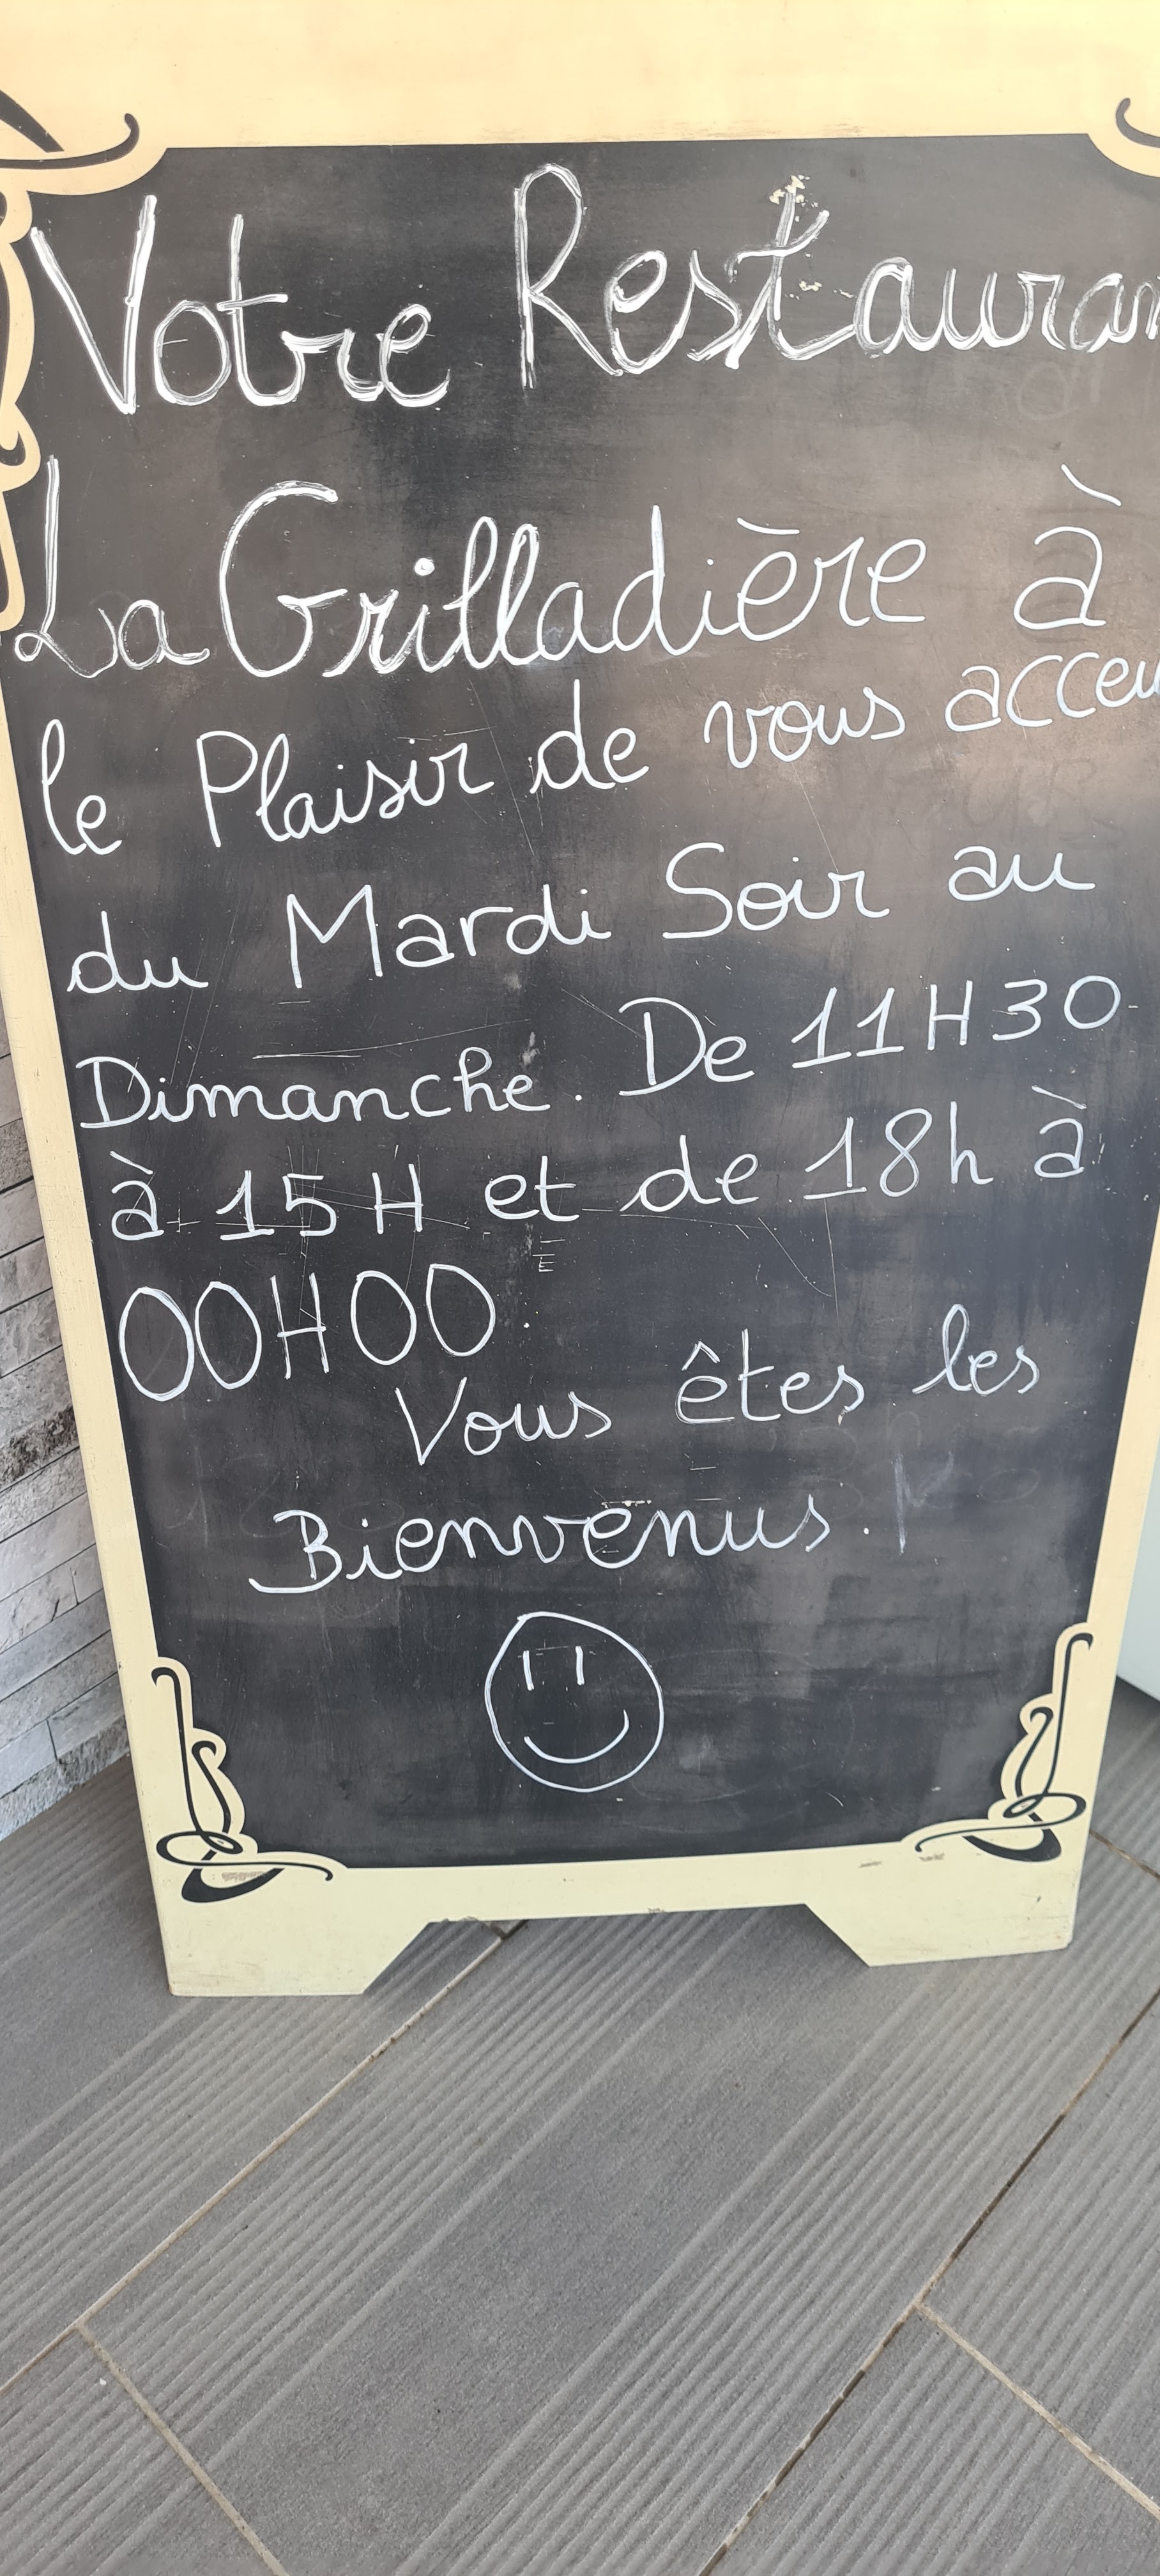 Votre Restauran
La Grilladière à
le Plaisir de vous acceu
du Mardi Soir au
Dimanche. De 11H30
à 15H et de 18h à
00H00.
Vous êtes les
Bienvenus.